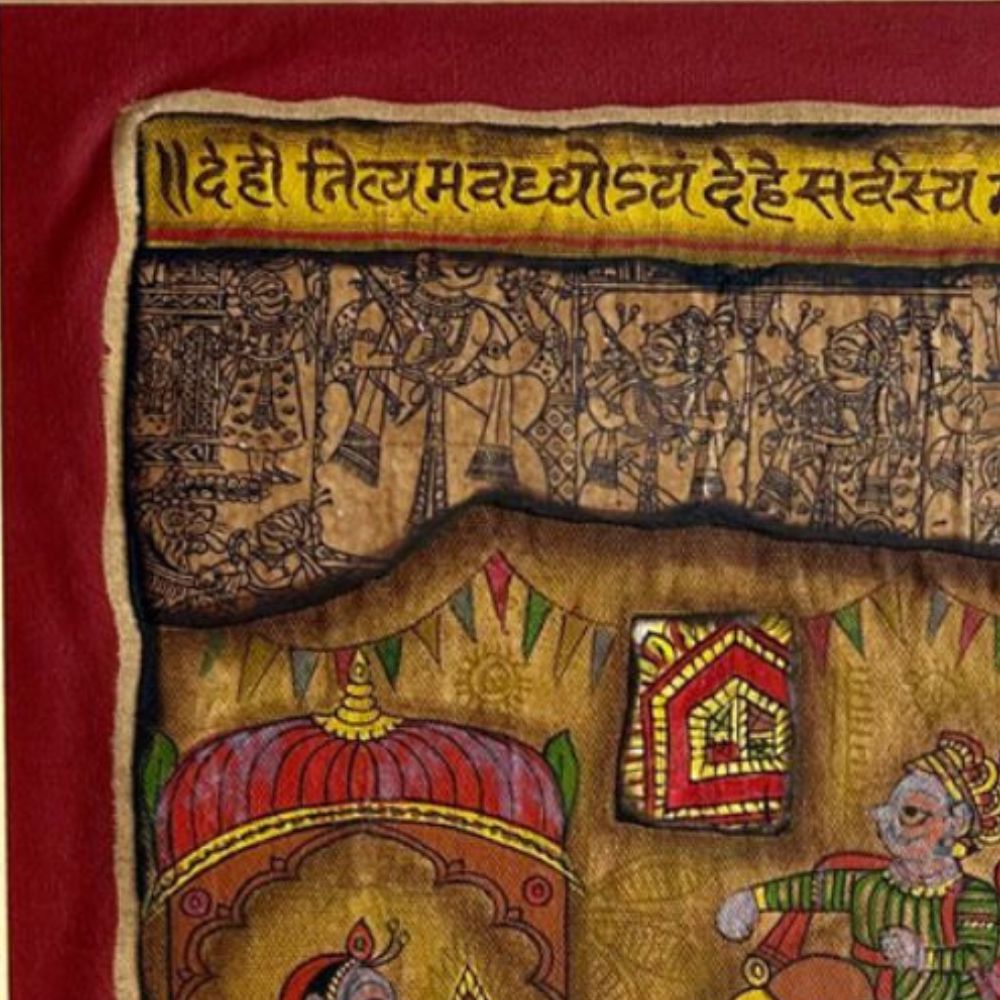 ॥देही नित्यमवध्योऽयं देहे सर्वस्य